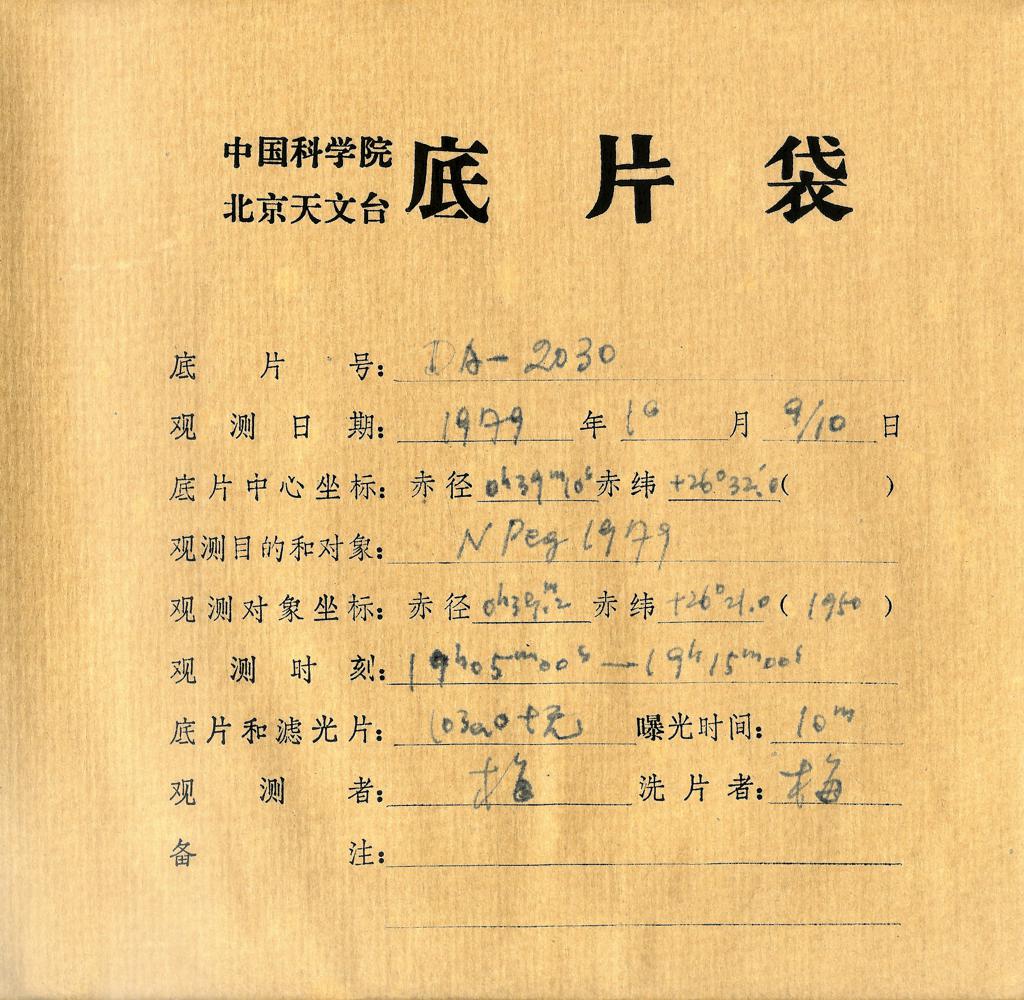 中国科学院
北京天文台 底片袋
底片号: DA-2030
观测日期: 1979 年 10 月 9/10 日
底片中心坐标: 赤径 0h39m10s 赤纬 +26°32′.0 ( )
观测目的和对象: N Peg 1979
观测对象坐标: 赤径 0h39m.2 赤纬 +26°21.0 ( 1950 )
观测时刻: 19h05m00s — 19h15m00s
底片和滤光片: 103aO+无 曝光时间: 10m
观测者: 梅 洗片者: 梅
备注: